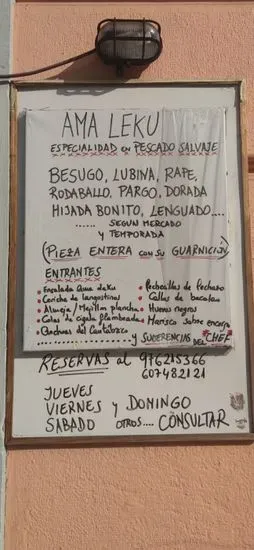 AMA LEKU
ESPECIALIDAD en PESCADO SALVAJE
BESUGO, LUBINA, RAPE,
RODABALLO, PARGO, DORADA
HIJADA BONITO, LENGUADO....
...... SEGUN MERCADO
Y TEMPORADA
(PIEZA ENTERA CON SU GUARNICION)
ENTRANTES
• Ensalada Ama Leku
• Ceviche de langostinos
• Almeja / Mejillon plancha
• Colas de cigala flambeadas
• Anchoas del Cantabrico
• Rechollas de
• Callos de bacalao
• Huevos negros
• Marisco sobre encargo
........ y SUGERENCIAS DEL "CHEF"
RESERVAS al 976215366
607482121
JUEVES
VIERNES y DOMINGO
SABADO OTROS.... CONSULTAR